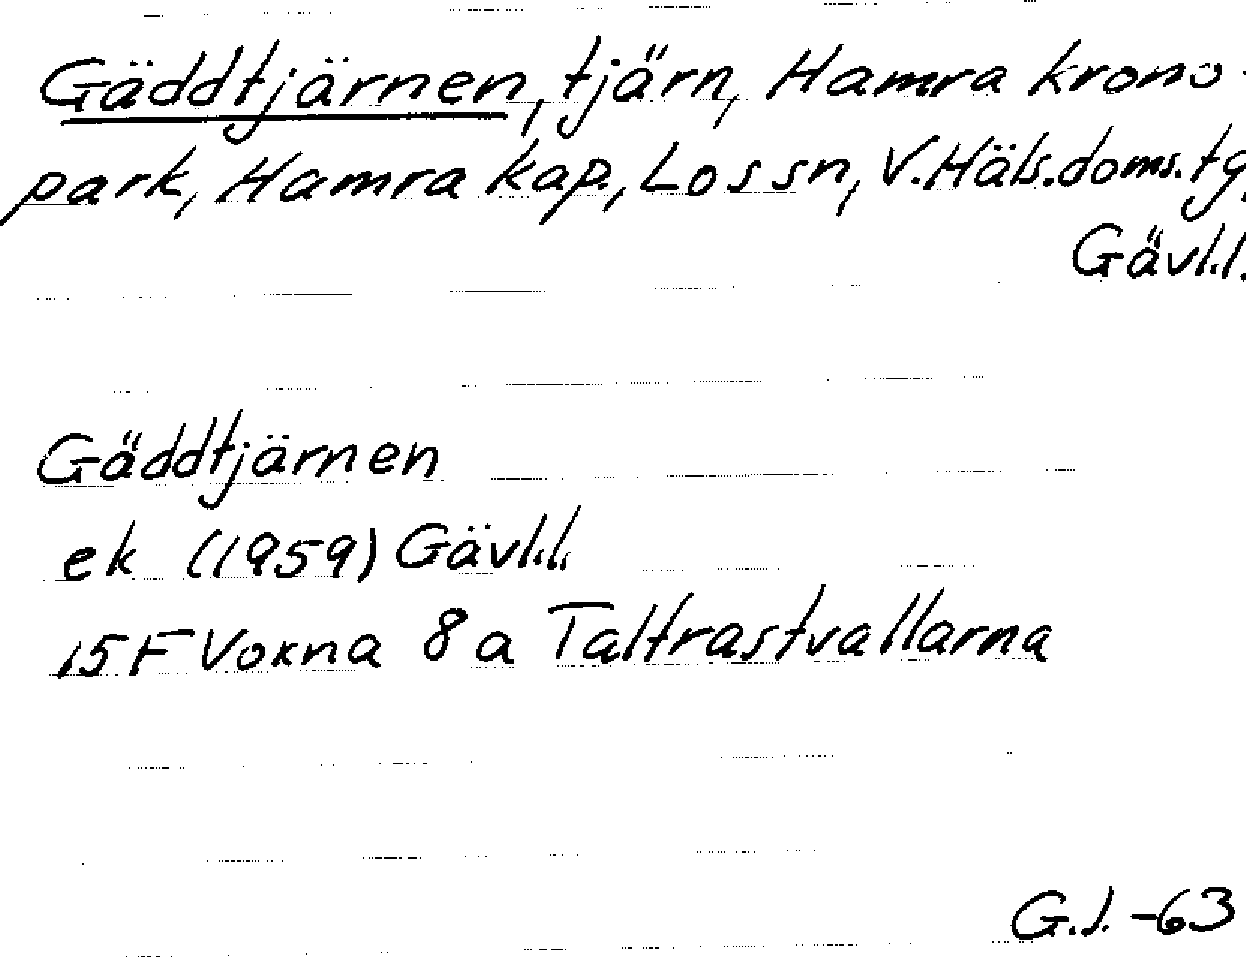 Gäddtjärnen, tjärn, Hamra krono-
park, Hamra kap., Los sn, V. Häls. doms. tg,
Gävl.l.
Gäddtjärnen
ek (1959) Gävl.l.
15F Voxna 8a Taltrastvallarna
G.J. -63